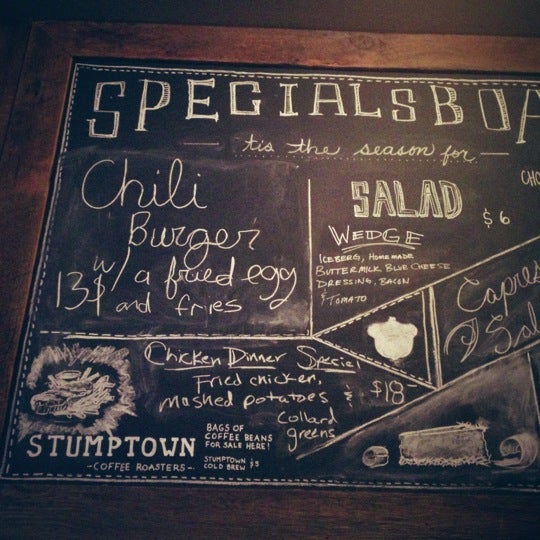 SPECIALS BOA
tis the season for
Chili
Burger
w/ a fried egg
13$ and fries
CHO
SALAD
$6
WEDGE
ICEBERG, HOMEMADE
BUTTERMILK BLUE CHEESE
DRESSING, BACON
& TOMATO
Capres
Sal
Chicken Dinner Special
Fried chicken,
mashed potatoes & $18
collard
greens
STUMPTOWN
-COFFEE ROASTERS-
BAGS OF
COFFEE BEANS
FOR SALE HERE!
STUMPTOWN $5
COLD BREW